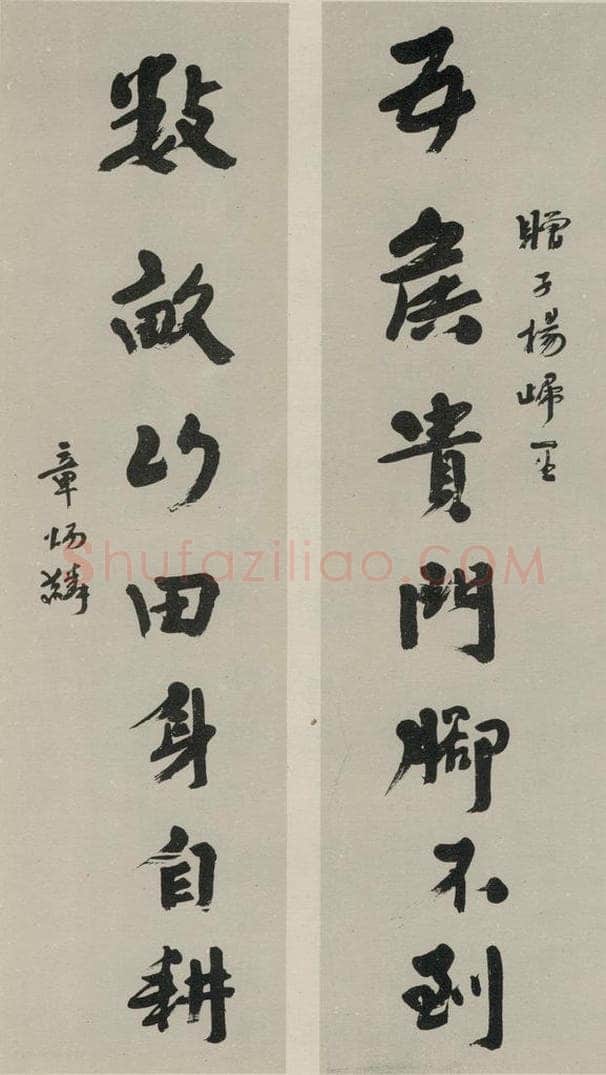 贈子楊
五侯貴門腳不到
數畝山田身自耕
章炳麟
Shufaziliao.COM